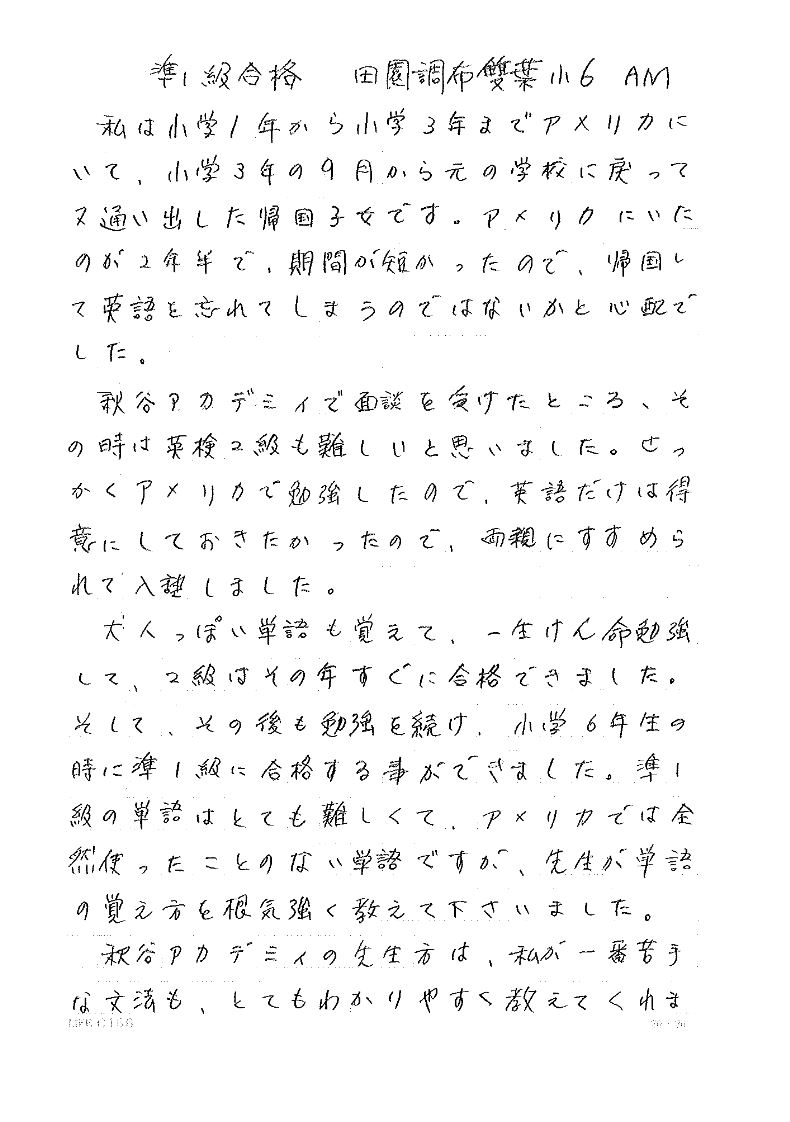 準1級合格 田園調布雙葉小6 AM
私は小学1年から小学3年までアメリカに
いて、小学3年の9月から元の学校に戻って
又通い出した帰国子女です。アメリカにいた
のが2年半で、期間が短かったので、帰国し
て英語を忘れてしまうのではないかと心配で
した。
秋谷アカデミィで面談を受けたところ、そ
の時は英検2級も難しいと思いました。せっ
かくアメリカで勉強したので、英語だけは得
意にしておきたかったので、両親にすすめら
れて入塾しました。
大人っぽい単語も覚えて、一生けん命勉強
して、2級はその年すぐに合格できました。
そして、その後も勉強を続け、小学6年生の
時に準1級に合格する事ができました。準1
級の単語はとても難しくて、アメリカでは全
然使ったことのない単語ですが、先生が単語
の覚え方を根気強く教えて下さいました。
秋谷アカデミィの先生方は、私が一番苦手
な文法も、とてもわかりやすく教えてくれま